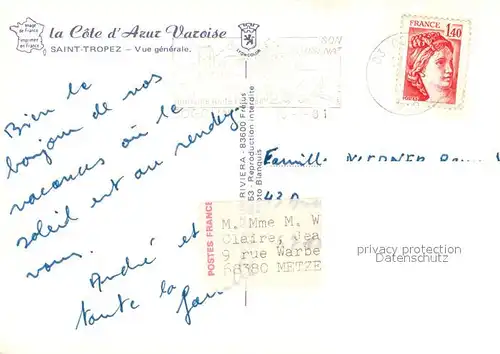 image
de France
imprimée
en France
la Côte d'Azur Varoise
SAINT-TROPEZ - Vue générale.
Bien le
bonjour de nos
vacances où le
soleil est au rendez-
vous.
André et
toute la
FRANCE
1,40
81
RIVIERA - 83600 Fréjus
Reproduction interdite
Blanquis
Famille
420
POSTES FRANCE
M. Mme M. W
Claire, Jea
9 rue Warbe
68380 METZE
privacy protection
Datenschutz